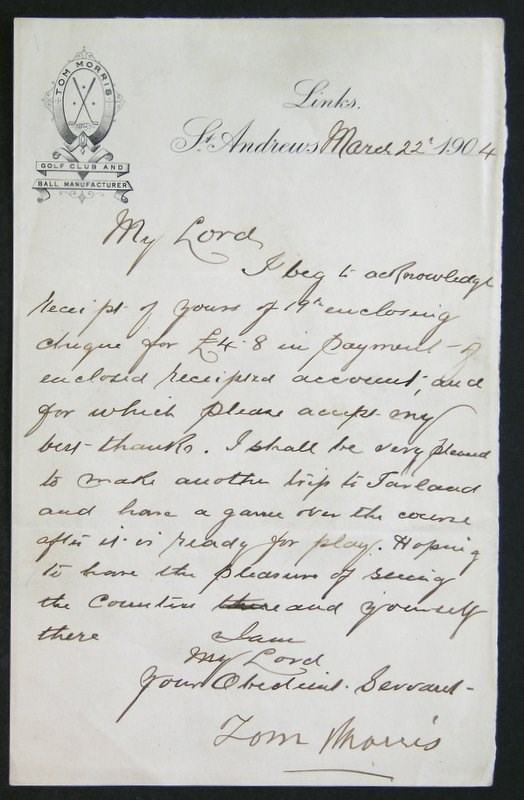 TOM MORRIS
GOLF CLUB AND
BALL MANUFACTURER
Links.
St. Andrews March 22d 1904
My Lord
I beg to acknowledge
receipt of yours of 19th enclosing
cheque for £4.8 in payment of
enclosed receipted account, and
for which please accept my
best thanks. I shall be very pleased
to make another trip to Tarland
and have a game over the course
after it is ready for play. Hoping
to have the pleasure of seeing
the Countess there and yourself
there
I am
My Lord
Your Obedient Servant
Tom Morris